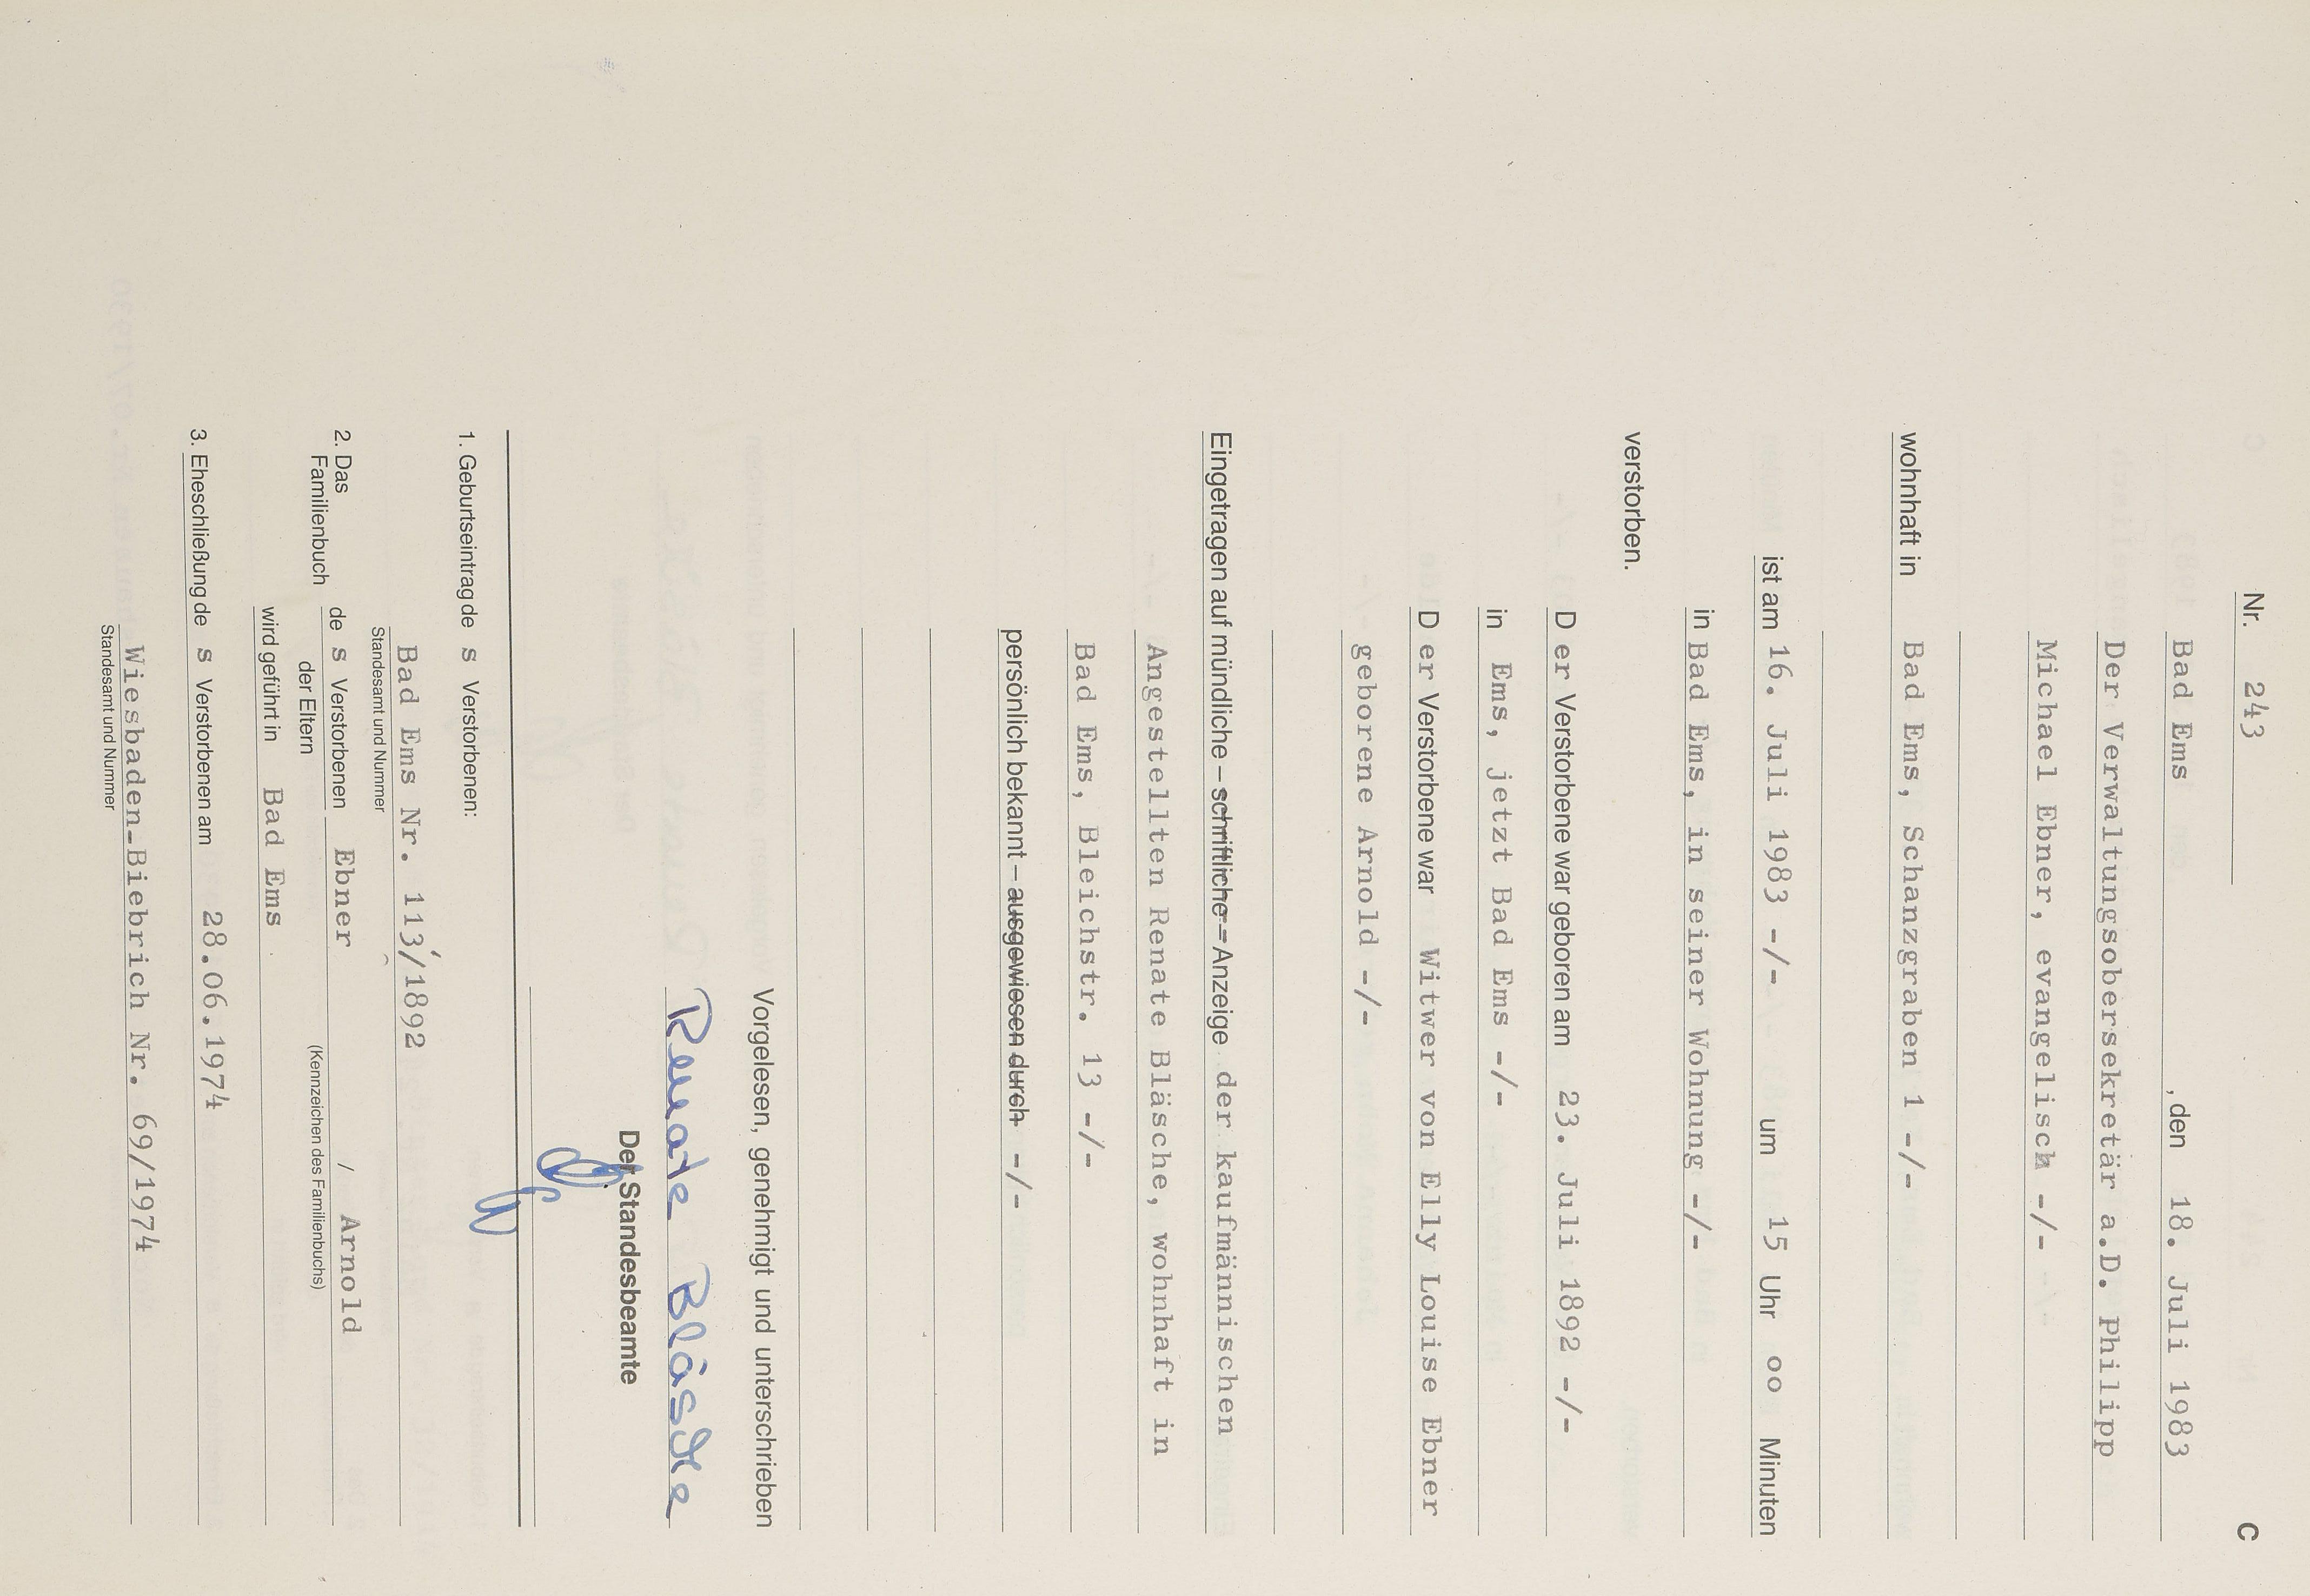 C
Nr. 243
Bad Ems , den 18. Juli 1983
Der Verwaltungsobersekretär a.D. Philipp
Michael Ebner, evangelisch -/-
wohnhaft in Bad Ems, Schanzgraben 1 -/-
ist am 16. Juli 1983 -/- um 15 Uhr oo Minuten
in Bad Ems, in seiner Wohnung -/-
verstorben.
D er Verstorbene war geboren am 23. Juli 1892 -/-
in Ems, jetzt Bad Ems -/-
D er Verstorbene war Witwer von Elly Louise Ebner
geborene Arnold -/-
Eingetragen auf mündliche – schriftliche – Anzeige der kaufmännischen
Angestellten Renate Bläsche, wohnhaft in
Bad Ems, Bleichstr. 13 -/-
persönlich bekannt – ausgewiesen durch -/-
Vorgelesen, genehmigt und unterschrieben
Renate Bläsche
Der Standesbeamte
1. Geburtseintrag de s Verstorbenen:
Bad Ems Nr. 113/1892
Standesamt und Nummer
2. Das Familienbuch de s Verstorbenen Ebner / Arnold
der Eltern (Kennzeichen des Familienbuchs)
wird geführt in Bad Ems
3. Eheschließung de s Verstorbenen am 28.06.1974
Wiesbaden-Biebrich Nr. 69/1974
Standesamt und Nummer